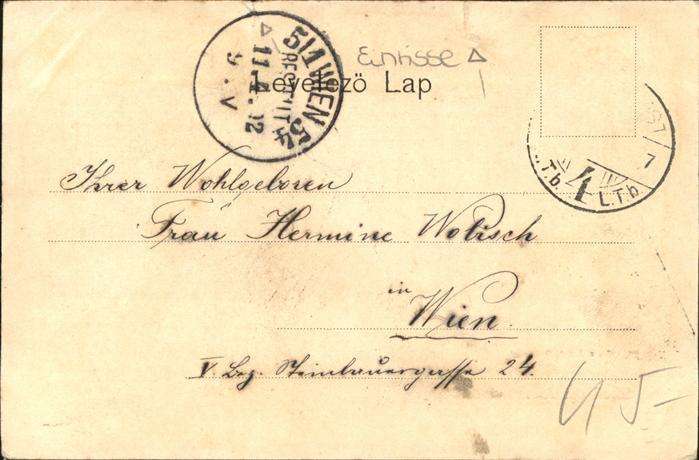 5/1 WIEN 54
BESTELLT
11.4.02
9.V
Levelező Lap
4
L.T.b
7
Ihrer Wohlgeboren
Frau Hermine Wotisch
in
Wien.
V. Bez. Steinbauergasse 24.
45-